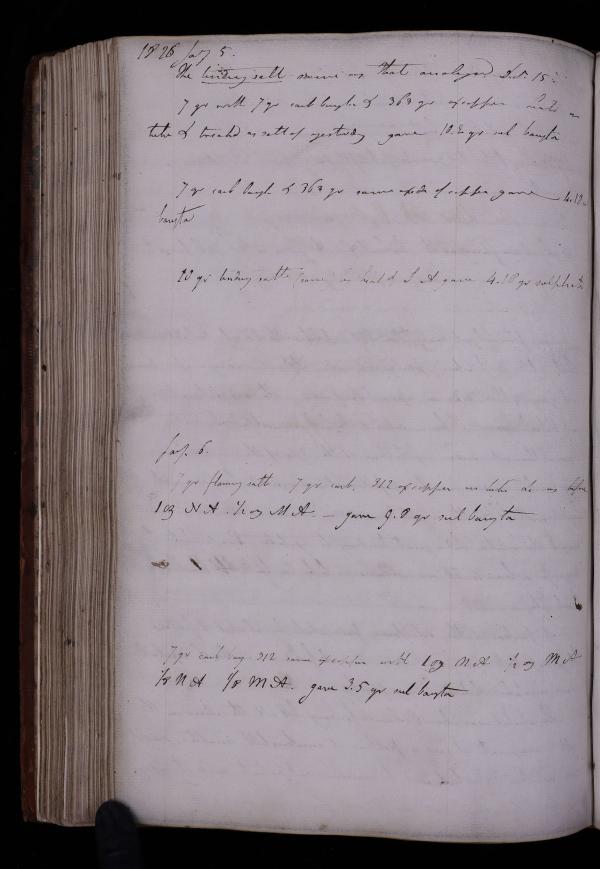 1826 Jany 5.
The binding salt same as that analyzed Dec. 15
7 gr with 7 gr carb baryta & 363 gr ox copper in a
tube & treated as salt of yesterday gave 10.2 gr sul baryta
7 gr carb baryta & 363 gr same oxide of copper gave 4.18
baryta
10 gr salt same S A gave 4.18 gr sulphate
Jany 6.
7 gr salt 7 gr carb. 312 ox copper in tube &c as before
1 oz N A. ½ oz M A. – gave 9.8 gr sul baryta
7 gr carb bary 312 same ox copper with 1 oz N A ½ oz M A
1/8 N A 1/8 M A. gave 3.5 gr sul baryta